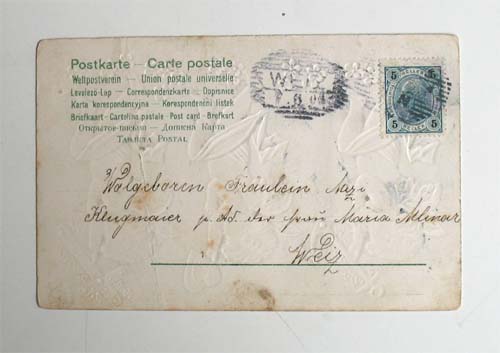 Postkarte — Carte postale
Weltpostverein — Union postale universelle
Levelezo-Lap — Correspondenzkarte — Dopisnice
Karta korespondencyjna — Korespondenční lístek
Briefkaart - Cartolina postale - Post card - Brefkort
Открытое письмо — Дописна Карта
Tarjeta Postal
WEIZ
5 HELLER 5
5 5
Wolgeboren Fräulein
p. Ad. der Frau Maria Mlinar
Weiz